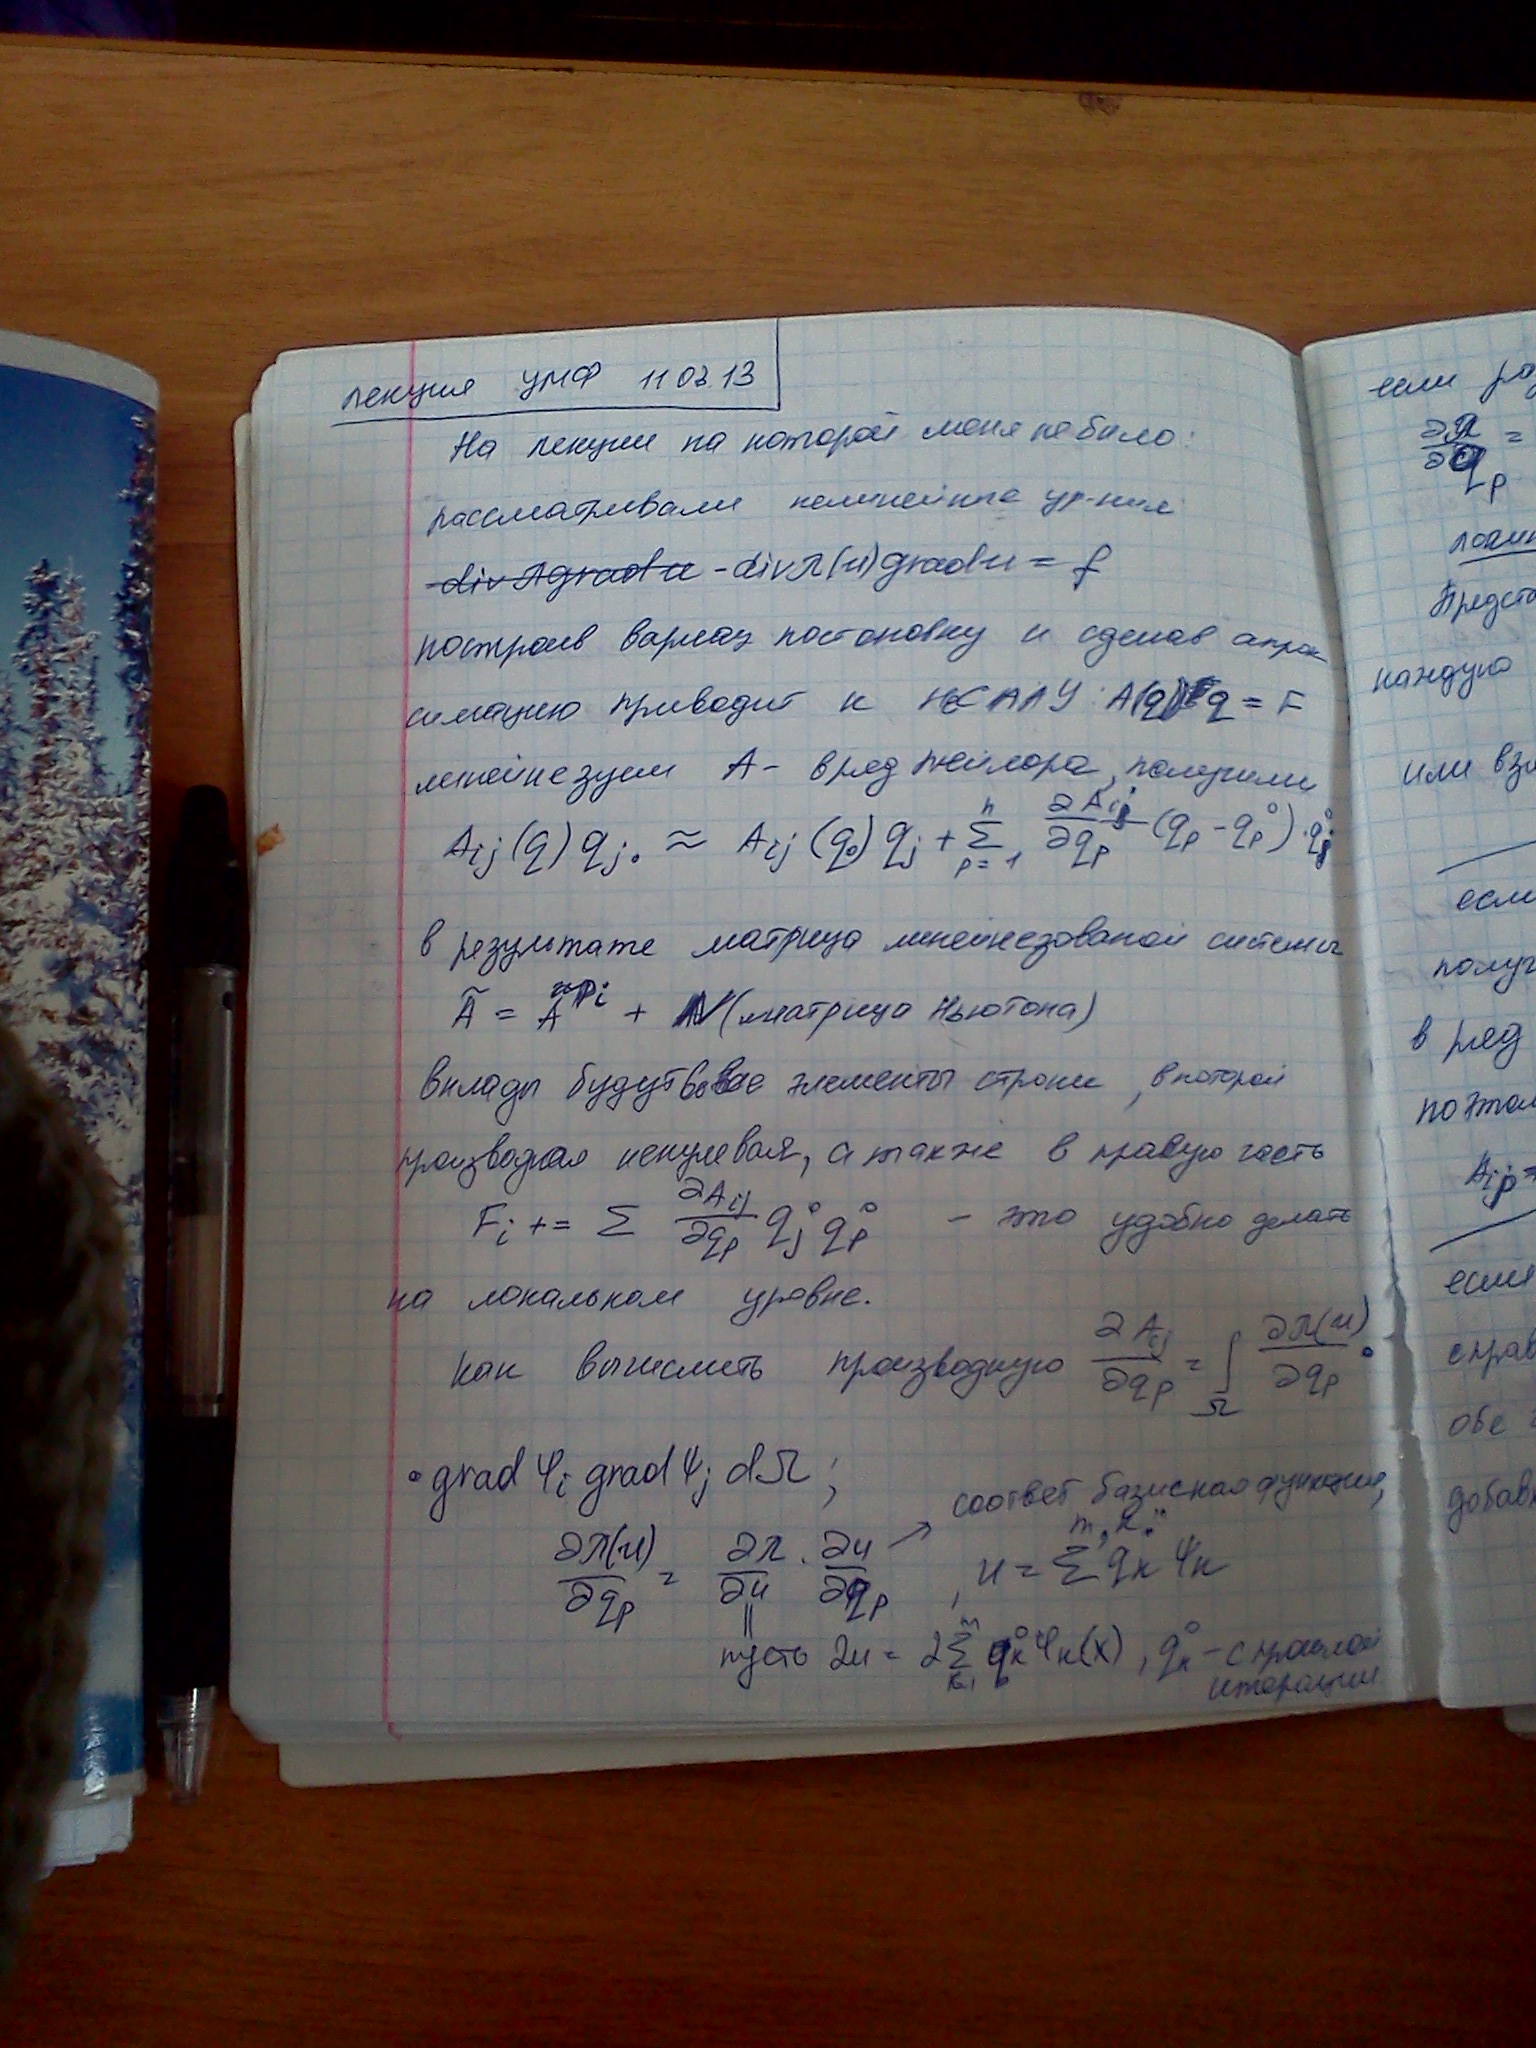 лекция УМФ 11 03.13
На лекции на которой меня не было:
рассматривали нелинейные ур-ния
-div λ grad u -div λ(u) grad u = f
построив вариац постановку и сделав апрок
симацию приводит к НСЛАУ: A(q) q = F
линейнезуем A - в ряд тейлора, получили
A_ij(q) q_j ≈ A_ij(q_0) q_j + Σ_{p=1}^{n} ∂A_ij/∂q_p (q_p - q_p^0)·q_j^0
в результате матрица линейнезованой системы
Ã = A^{прi} + N (матрица Ньютона)
вклады будут во все элементы строки, в которой
производная ненулевая, а также в правую часть
F_i += Σ ∂A_ij/∂q_p q_j^0 q_p^0 - это удобно делать
на локальном уровне.
как вычислить производную ∂A_ij/∂q_p = ∫_Ω ∂λ(u)/∂q_p ·
· grad ψ_i grad ψ_j dΩ;
соответ базисная функция,
∂λ(u)/∂q_p = ∂λ/∂u · ∂u/∂q_p → , u = Σ q_k ψ_k
пусть 2u = 2 Σ_{k=1}^{m} q_k^0 ψ_k(x), q_k^0 - с прошлой
итерации
если
∂λ/∂q_p =
Предста
каждую
или вз
если
получ
в ряд
поэтом
A_ij =
если
справ
обе
добав